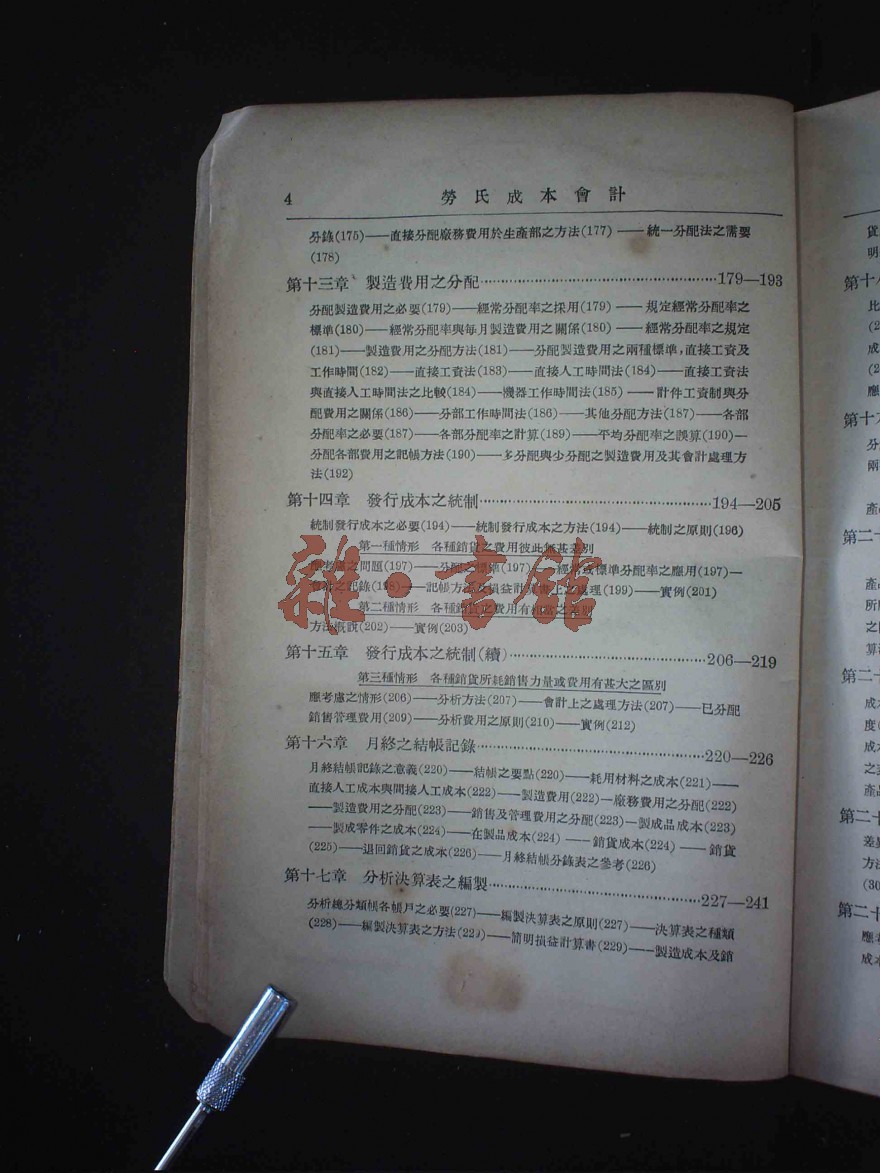 4 勞氏成本會計
分錄(175)——直接分配廠務費用於生產部之方法(177)——統一分配法之需要
(178)
第十三章 製造費用之分配……179—193
分配製造費用之必要(179)——經常分配率之採用(179)——規定經常分配率之
標準(180)——經常分配率與每月製造費用之關係(180)——經常分配率之規定
(181)——製造費用之分配方法(181)——分配製造費用之兩種標準，直接工資及
工作時間(182)——直接工資法(183)——直接人工時間法(184)——直接工資法
與直接人工時間法之比較(184)——機器工作時間法(185)——計件工資制與分
配費用之關係(186)——分部工作時間法(186)——其他分配方法(187)——各部
分配率之必要(187)——各部分配率之計算(189)——平均分配率之誤算(190)—
分配各部費用之記帳方法(190)——多分配與少分配之製造費用及其會計處理方
法(192)
第十四章 發行成本之統制……194—205
統制發行成本之必要(194)——統制發行成本之方法(194)——統制之原則(196)
第一種情形 各種銷貨之費用彼此無甚差別
應考慮之問題(197)——分配之標準(197)——經常或標準分配率之應用(197)—
之記錄(198)——記帳方法及損益計算書上之處理(199)——實例(201)
第二種情形 各種銷貨之費用有相當之差別
方法概說(202)——實例(203)
第十五章 發行成本之統制(續)……206—219
第三種情形 各種銷貨所耗銷售力量或費用有甚大之區別
應考慮之情形(206)——分析方法(207)——會計上之處理方法(207)——已分配
銷售管理費用(209)——分析費用之原則(210)——實例(212)
第十六章 月終之結帳記錄……220—226
月終結帳記錄之意義(220)——結帳之要點(220)——耗用材料之成本(221)——
直接人工成本與間接人工成本(222)——製造費用(222)—廠務費用之分配(222)
——製造費用之分配(223)——銷售及管理費用之分配(223)—製成品成本(223)
——製成零件之成本(224)——在製品成本(224)——銷貨成本(224)——銷貨
(225)——退回銷貨之成本(226)——月終結帳分錄表之參考(226)
第十七章 分析決算表之編製……227—241
分析總分類帳各帳戶之必要(227)——編製決算表之原則(227)——決算表之種類
(228)——編製決算表之方法(229)——簡明損益計算書(229)——製造成本及銷
雜·書館
貨
明
第十
比
(2
成
(2
應
第十
分
兩
產
第二十
產
所
之
算
第二十
成
度(
成
之
產
第二十
差
方
(30
第二十
應
成本